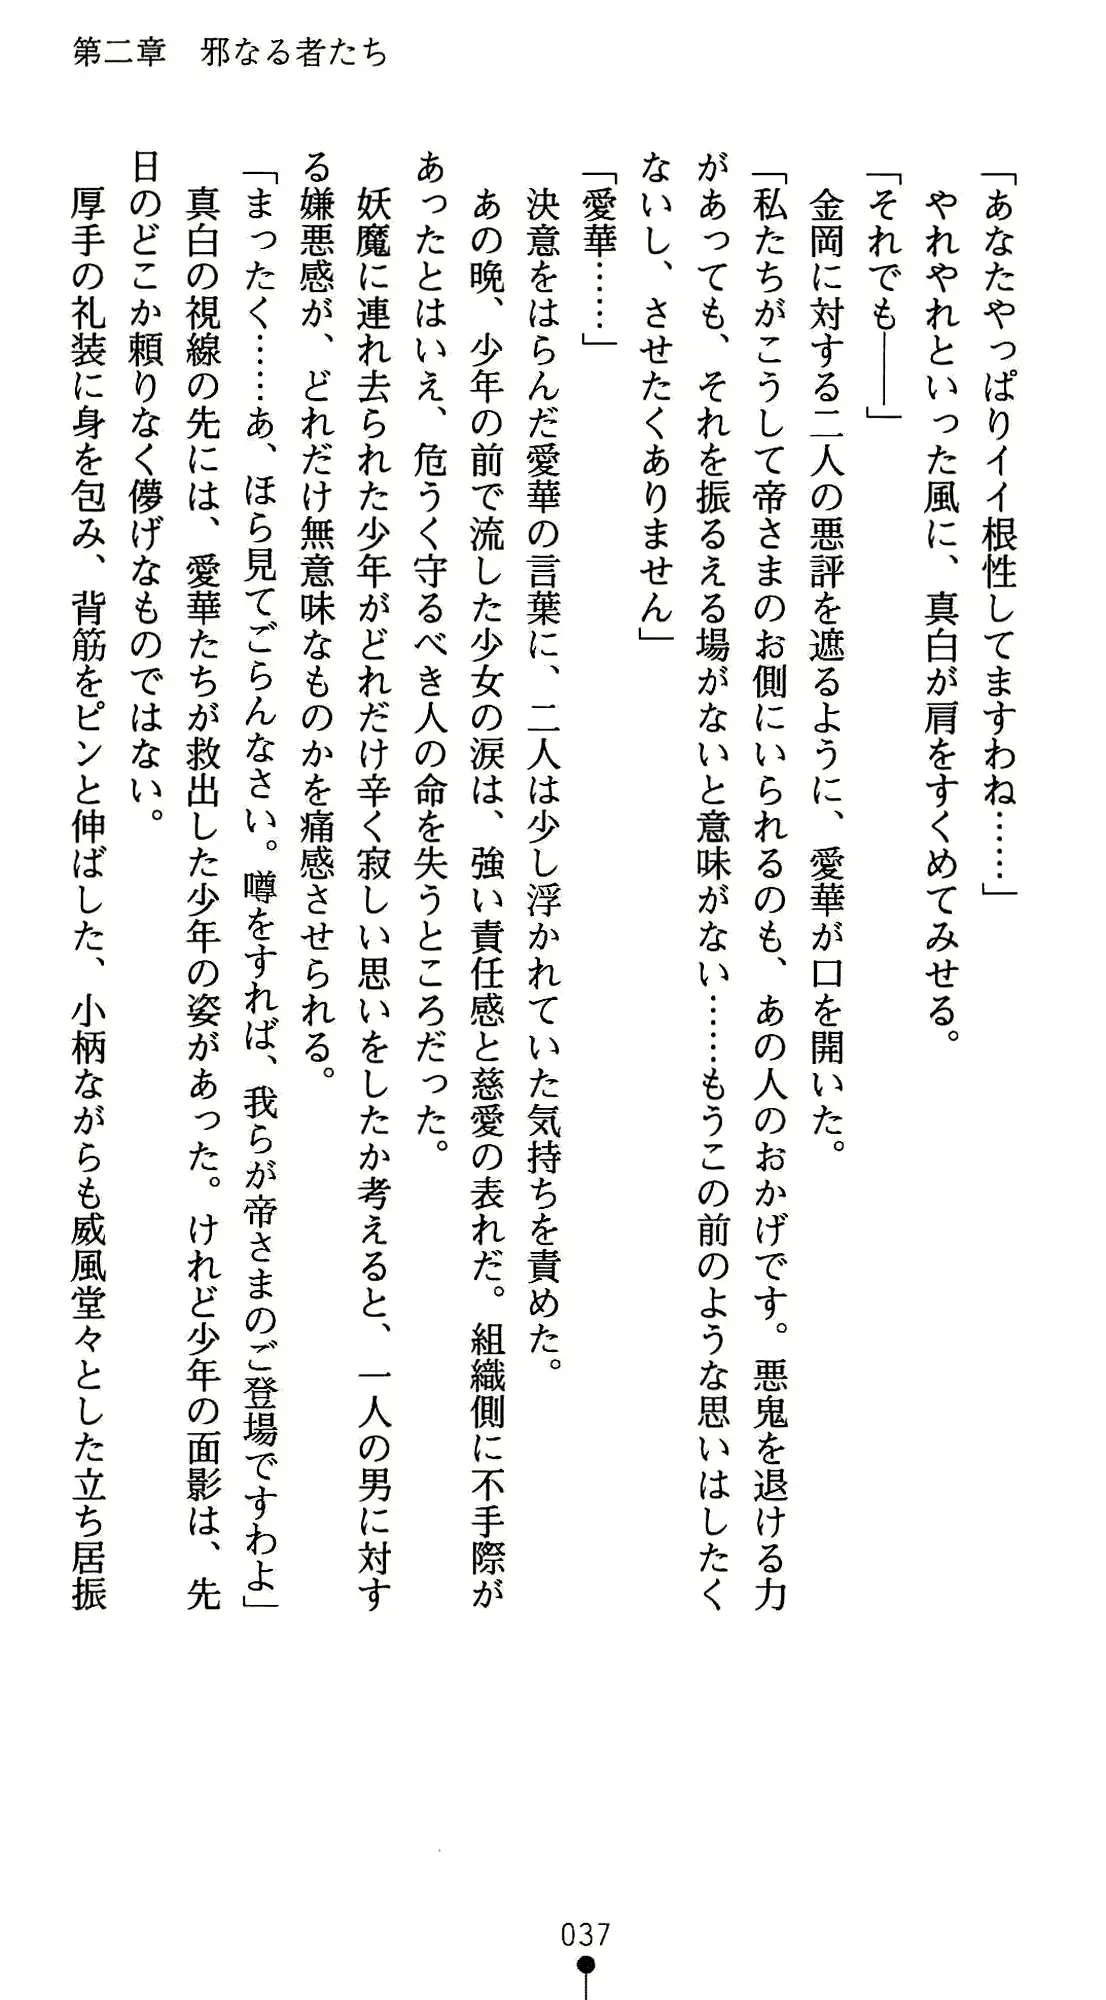 第二章　邪なる者たち
「あなたやっぱりイイ根性してますわね……」
　やれやれといった風に、真白が肩をすくめてみせる。
「それでも――」
　金岡に対する二人の悪評を遮るように、愛華が口を開いた。
「私たちがこうして帝さまのお側にいられるのも、あの人のおかげです。悪鬼を退ける力
があっても、それを振るえる場がないと意味がない……もうこの前のような思いはしたく
ないし、させたくありません」
「愛華……」
　決意をはらんだ愛華の言葉に、二人は少し浮かれていた気持ちを責めた。
　あの晩、少年の前で流した少女の涙は、強い責任感と慈愛の表れだ。組織側に不手際が
あったとはいえ、危うく守るべき人の命を失うところだった。
　妖魔に連れ去られた少年がどれだけ辛く寂しい思いをしたか考えると、一人の男に対す
る嫌悪感が、どれだけ無意味なものかを痛感させられる。
「まったく……あ、ほら見てごらんなさい。噂をすれば、我らが帝さまのご登場ですわよ」
　真白の視線の先には、愛華たちが救出した少年の姿があった。けれど少年の面影は、先
日のどこか頼りなく儚げなものではない。
　厚手の礼装に身を包み、背筋をピンと伸ばした、小柄ながらも威風堂々とした立ち居振
037